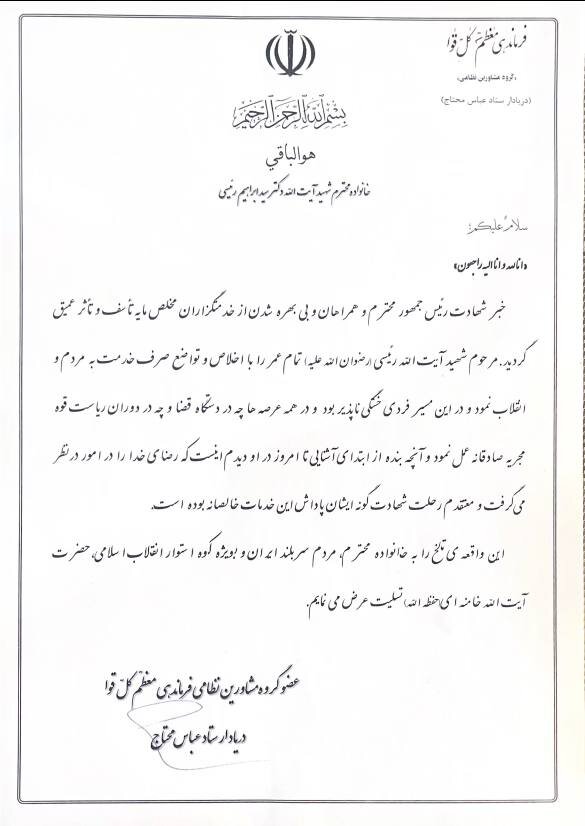 فرماندهی معظم کل قوا
«گروه مشاورین نظامی»
(دریادار ستاد عباس محتاج)
بسم الله الرحمن الرحیم
هوالباقي
خانواده محترم شهید آیت الله دکتر سید ابراهیم رئیسی
سلامٌ علیکم؛
«انا لله و انا الیه راجعون»
خبر شهادت رئیس جمهور محترم و همراهان و بی بهره شدن از خدمتگزاران مخلص مایه تأسف و تأثر عمیق
گردید. مرحوم شهید آیت الله رئیسی (رضوان الله علیه) تمام عمر را با اخلاص و تواضع صرف خدمت به مردم و
انقلاب نمود و در این مسیر فردی خستگی ناپذیر بود و در همه عرصه ها چه در دستگاه قضا و چه در دوران ریاست قوه
مجریه صادقانه عمل نمود و آنچه بنده از ابتدای آشنایی تا امروز در او دیدم اینست که رضای خدا را در امور در نظر
می گرفت و معتقدم رحلت شهادت گونه ایشان پاداش این خدمات خالصانه بوده است.
این واقعه ی تلخ را به خانواده محترم، مردم سربلند ایران و بویژه کوه استوار انقلاب اسلامی، حضرت
آیت الله خامنه ای (حفظه الله) تسلیت عرض می نمایم.
عضو گروه مشاورین نظامی فرماندهی معظم کل قوا
دریادار ستاد عباس محتاج